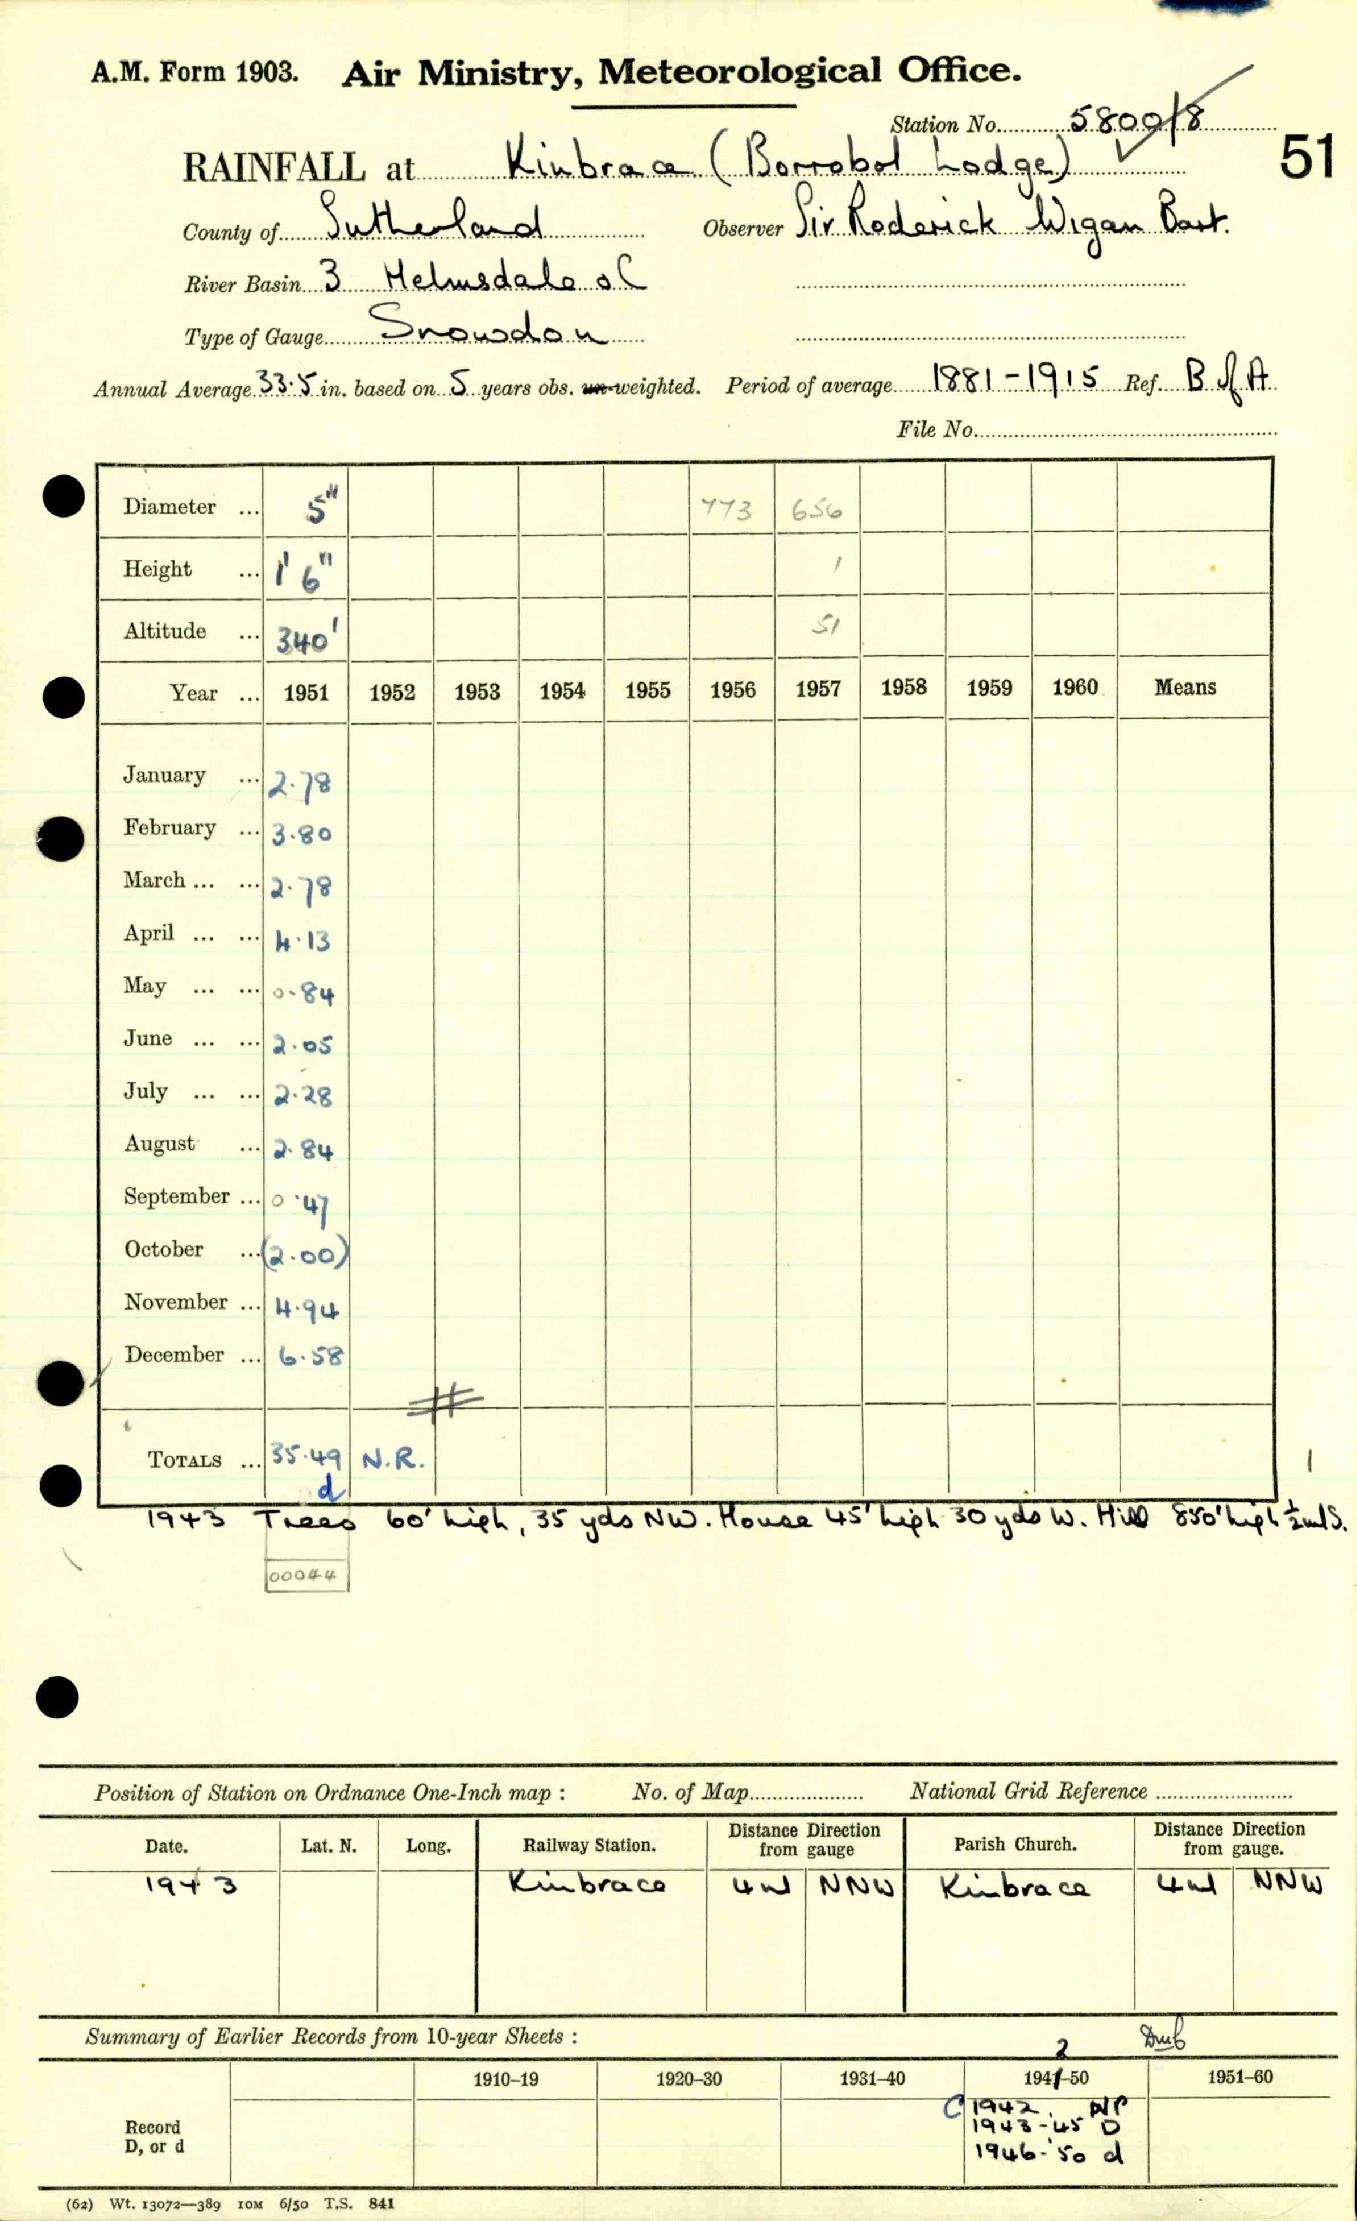 A.M. Form 1903. Air Ministry, Meteorological Office.
Station No. 5800/8
RAINFALL at Kinbrace (Borrobol Lodge)
51
County of Sutherland Observer Sir Roderick Wigan Bart.
River Basin 3 Helmsdale &C
Type of Gauge Snowdon
Annual Average 33.5 in. based on 5 years obs. un-weighted. Period of average 1881-1915 Ref. B of A
File No.
Diameter ... 5" 773 656
Height ... 1' 6" 1
Altitude ... 340' 51
Year ... 1951 1952 1953 1954 1955 1956 1957 1958 1959 1960 Means
January ... 2.78
February ... 3.80
March ... ... 2.78
April ... ... 4.13
May ... ... 0.84
June ... ... 2.05
July ... ... 2.28
August ... 2.84
September ... 0.47
October ... (2.00)
November ... 4.94
December ... 6.58
TOTALS ... 35.49 N.R. 1
d
1943 Trees 60' high, 35 yds NW. House 45' high 30 yds W. Hill 850' high ½ ml S.
00044
Position of Station on Ordnance One-Inch map : No. of Map National Grid Reference
Date. Lat. N. Long. Railway Station. Distance Direction from gauge Parish Church. Distance Direction from gauge.
1943 Kinbrace 4 ml NNW Kinbrace 4 ml NNW
Summary of Earlier Records from 10-year Sheets :
2
1910–19 1920–30 1931–40 1941–50 1951–60
Record D, or d
C 1942. NP
1943-45 D
1946-'50 d
(62) Wt. 13072—389 10M 6/50 T.S. 841